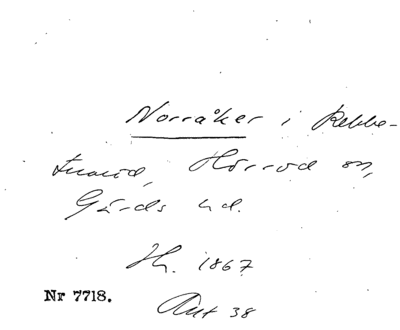 Norråker i Rebbe-
tuaröd, Hörröd sn,
Gärds hd.
Hh. 1867
Nr 7718.
Ant 38